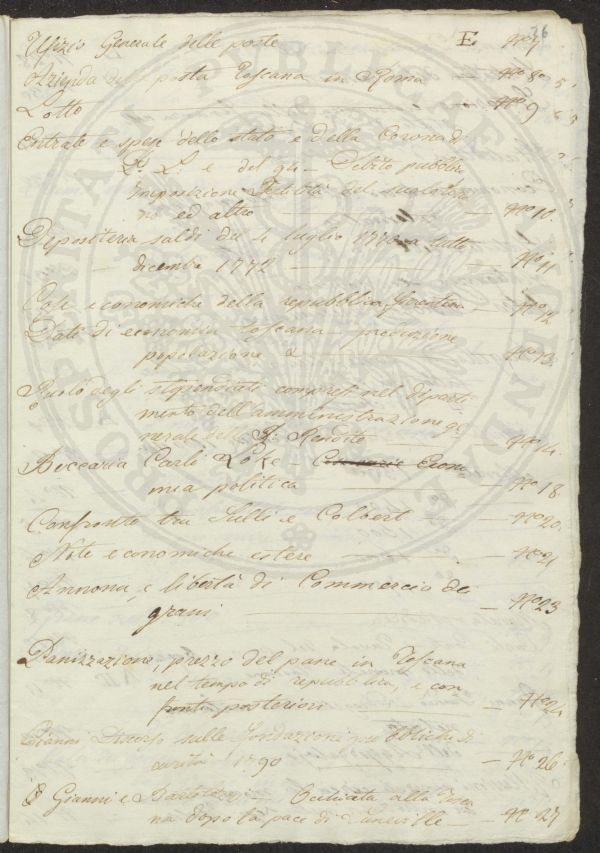 26
Ufizio Generale delle poste E No 7
Azienda della posta Toscana in Roma — No 8
Lotto — No 9
Entrate e spese dello stato e della Corona di
P. L: e del 94 — Debito pubbli:
imposizione
no ed altro — No 10.
Depositeria saldi del 4 luglio 1770 a tutto
dicembre 1772 — No 11
Cose economiche della repubblica fiorentina — No 12
Dati di economia toscana produzione
popolazione & — No 13
Ruolo degli stipendiati compresi nel diparti
mento dell'amministrazione ge
nerale delle R. Rendite — No 14.
Beccaria Carli Loke — Econo
mia politica — No 18.
Confronto tra Sulli e Colbert — No 20.
Note economiche estere — No 21
Annona, e libertà di Commercio de
grani — No 23
Panizzazione, prezzo del pane in Toscana
nel tempo di repubblica, e con
fronti posteriori — No 24
Gianni Discorso sulle fondazioni pubbliche di
carità 1790 — No 26
Gianni e — Occhiata alla Tosca
na dopo la pace di Luneville — No 27
PROSPERITATI PUBLICAE AUGENDAE